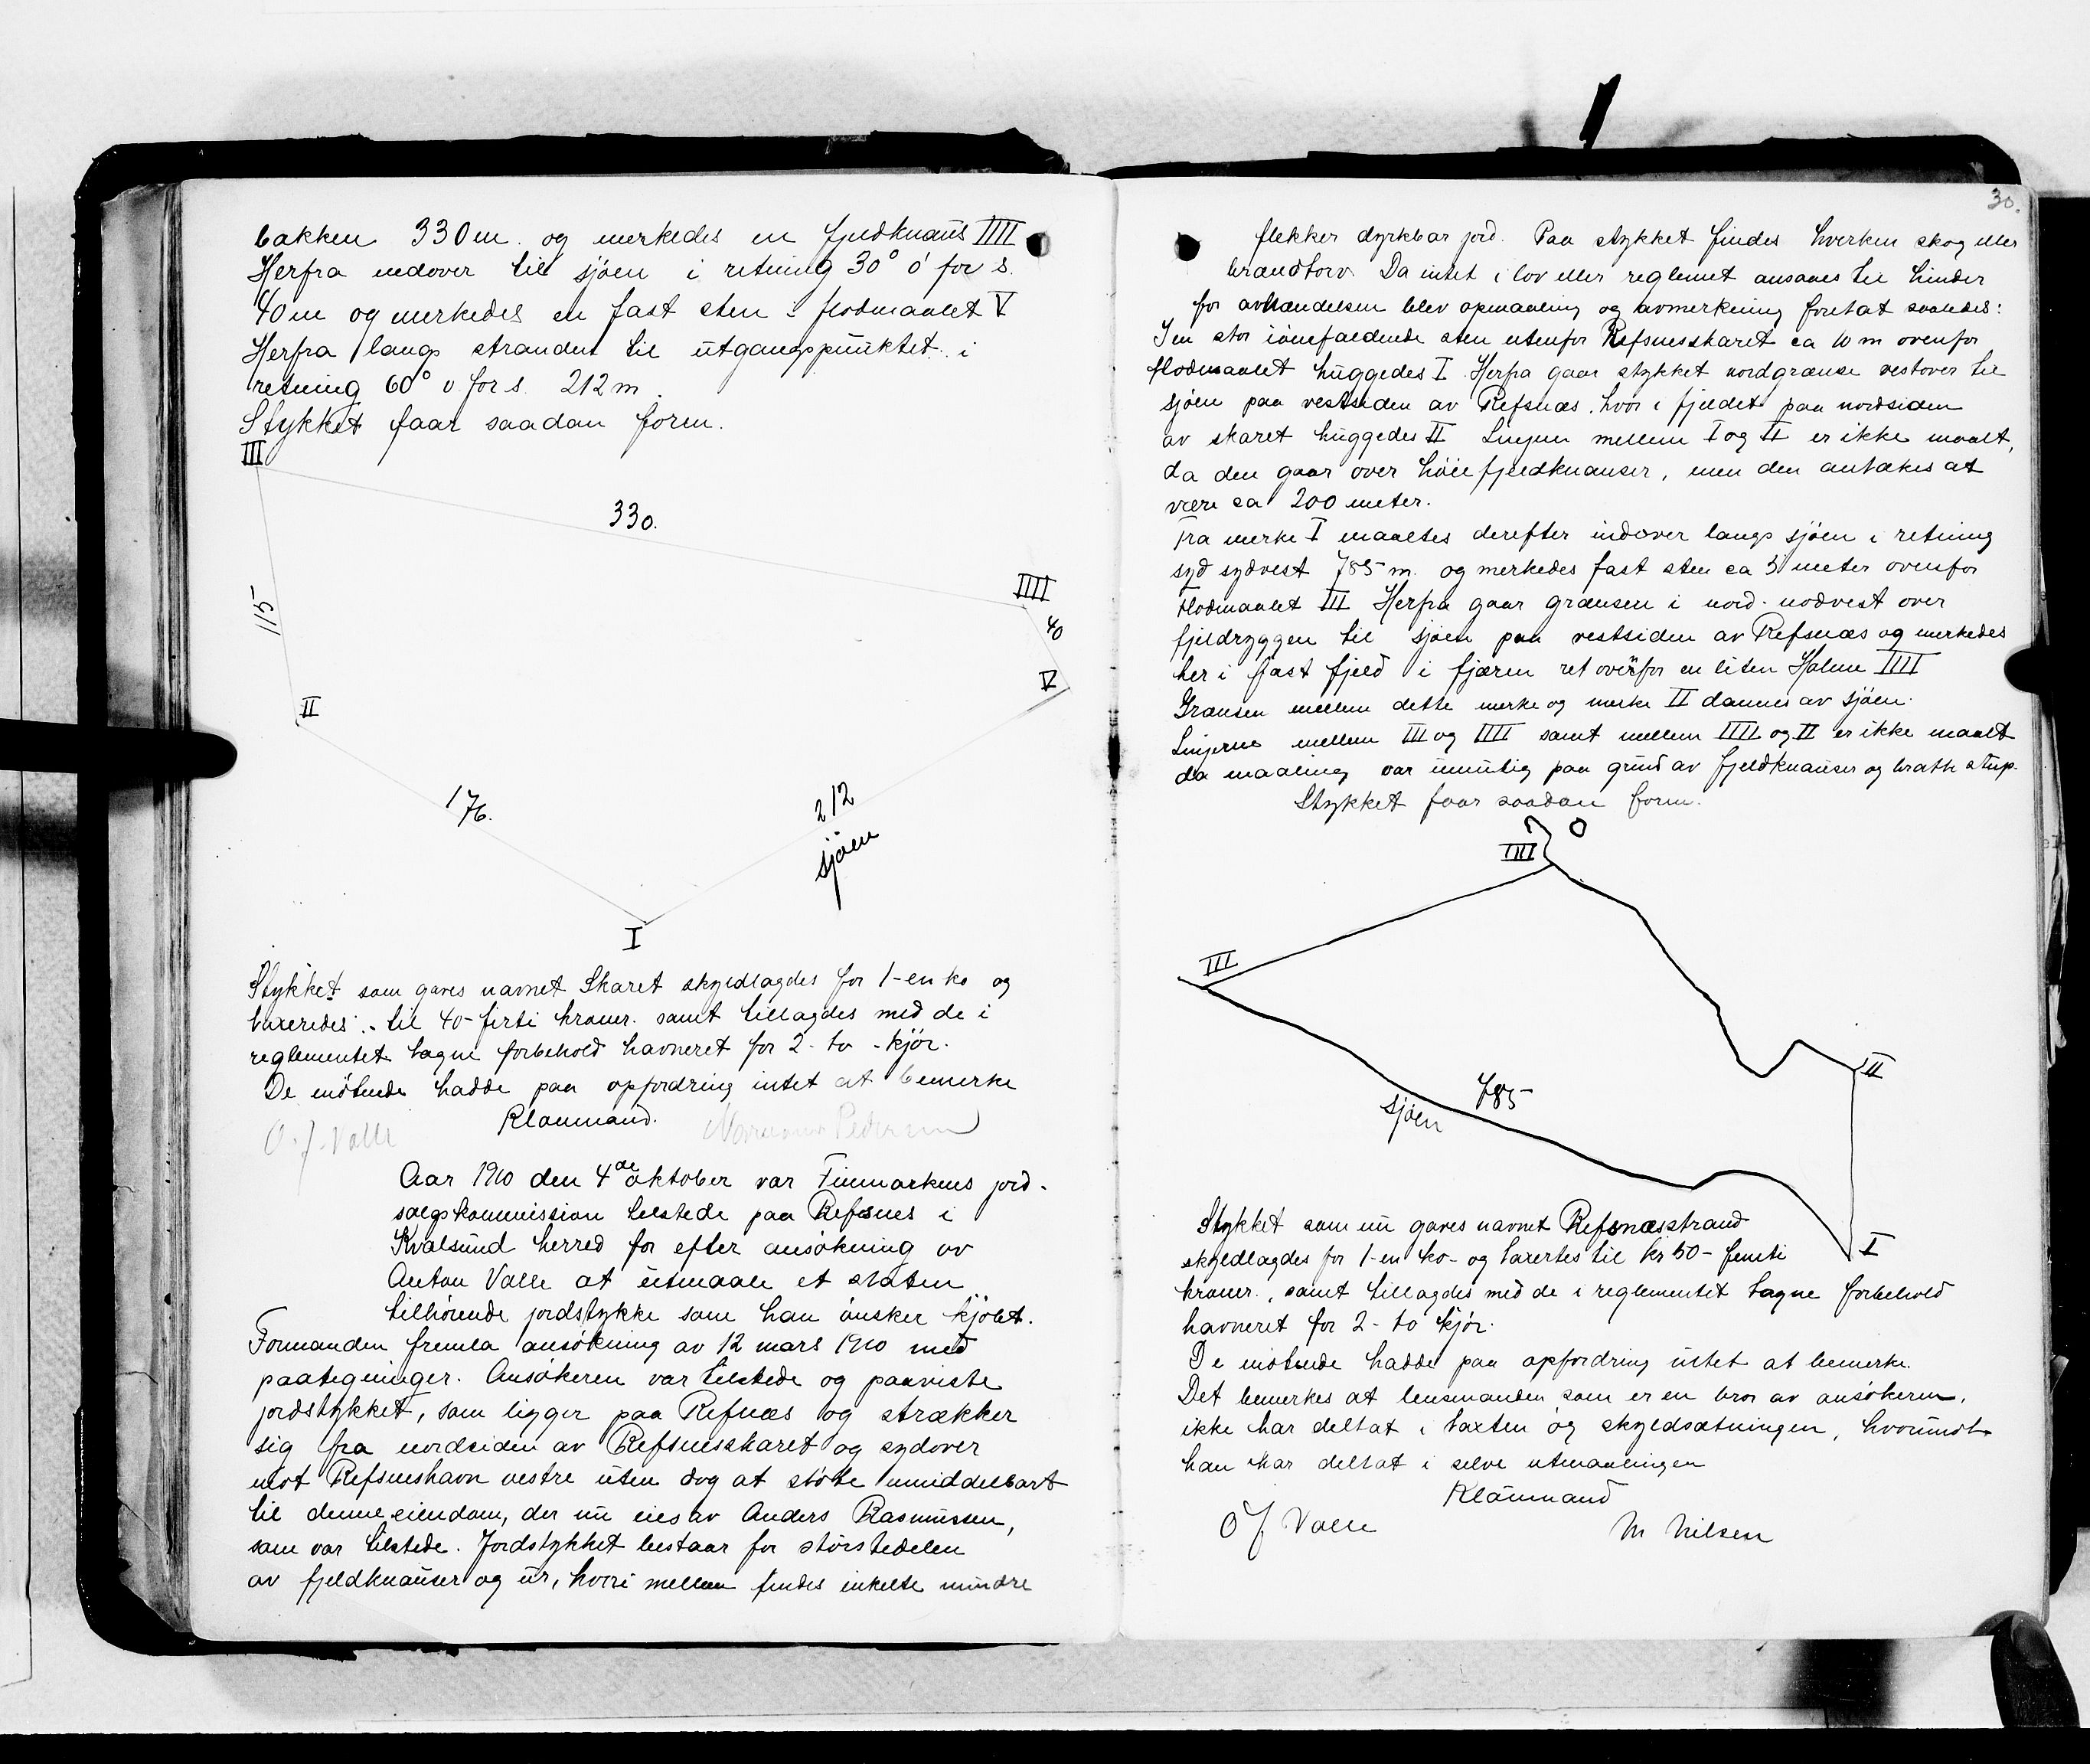 bakken 330 m. og merkedes en fjeldknaus IIII
Herfra nedover til sjöen i retning 30° ö for s.
40 m og merkedes en fast sten i flodmaalet V
Herfra langs stranden til utgangspunktet i
retning 60° v. for s. 212 m.
Stykket faar saadan form.
III
330.
IIII
115
40
V
II
176.
212
sjöen
I
Stykket som gaves navnet Skaret skyldlagdes for 1-en ko og
taxeredes til 40-firti kroner. samt tillagdes med de i
reglementet tagne forbehold havneret for 2-to-kjör.
De mötende hadde paa opfordring intet at bemerke
Klaumand.
O. J. Valle Pedersen
Aar 1910 den 4de oktober var Finmarkens jord-
salgskommission tilstede paa Refsnes i
Kvalsund herred for efter ansökning av
Anton Valle at utmaale et staten
tilhörende jordstykke som han önsker kjöbt.
Formanden fremla ansökning av 12 mars 1910 med
paategninger. Ansökeren var tilstede og paaviste
jordstykket, som ligger paa Refnæs og strækker
sig fra nordsiden av Refsnesskaret og sydover
mot Refsneshavn vestre uten dog at stöte umiddelbart
til denne eiendom, der nu eies av Anders Rasmussen,
som var tilstede. Jordstykket bestaar for störstedelen
av fjeldknauser og ur, hvori mellem findes enkelte mindre
30.
flekker dyrkbar jord. Paa stykket findes hverken skog eller
brændtorv. Da intet i lov eller reglemet ansaaes til hinder
for avhændelsen blev opmaaling og avmerkning foretat saaledes:
I en stor iönefaldende sten utenfor Refsnesskaret ca 10 m ovenfor
flodmaalet huggedes I. Herfra gaar stykket nordgrænse vestover til
sjöen paa vestsiden av Refsnæs, hvor i fjeldet paa nordsiden
av skaret huggedes II Linjen mellem I og II er ikke maalt,
da den gaar over höie fjeldknauser, men den antakes at
være ca 200 meter.
Fra merke I maaltes derefter indover langs sjöen i retning
syd sydvest 785 m. og merkedes fast sten ca 3 meter ovenfor
flodmaalet III Herfra gaar grænsen i nord-nodvest over
fjeldryggen til sjöen paa vestsiden av Refsnæs og merkedes
her i fast fjeld i fjæren ret overfor en liten Holme IIII
Grænsen mellem dette merke og merke II dannes av sjöen.
Linjerne mellem III og IIII samt mellem IIII og II er ikke maalt
da maaling var umulig paa grund av fjeldknauser og bratte stup.
Stykket faar saadan form.
IIII
III
II
785
sjöen
I
Stykket som nu gaves navnet Refsnæsstrand
skyldlagdes for 1-en ko- og taxertes til kr 50- femti
kroner, samt tillagdes med de i reglementet tagne forbehold
havneret for 2-to kjör.
De mötende hadde paa opfordring intet at bemerke.
Det bemerkes at lensmanden som er en bror av ansökeren,
ikke har deltat i taxten og skyldsætningen, hvorimot
han har deltat i selve utmaalingen
Klaumand
O J Valle M Nilsen